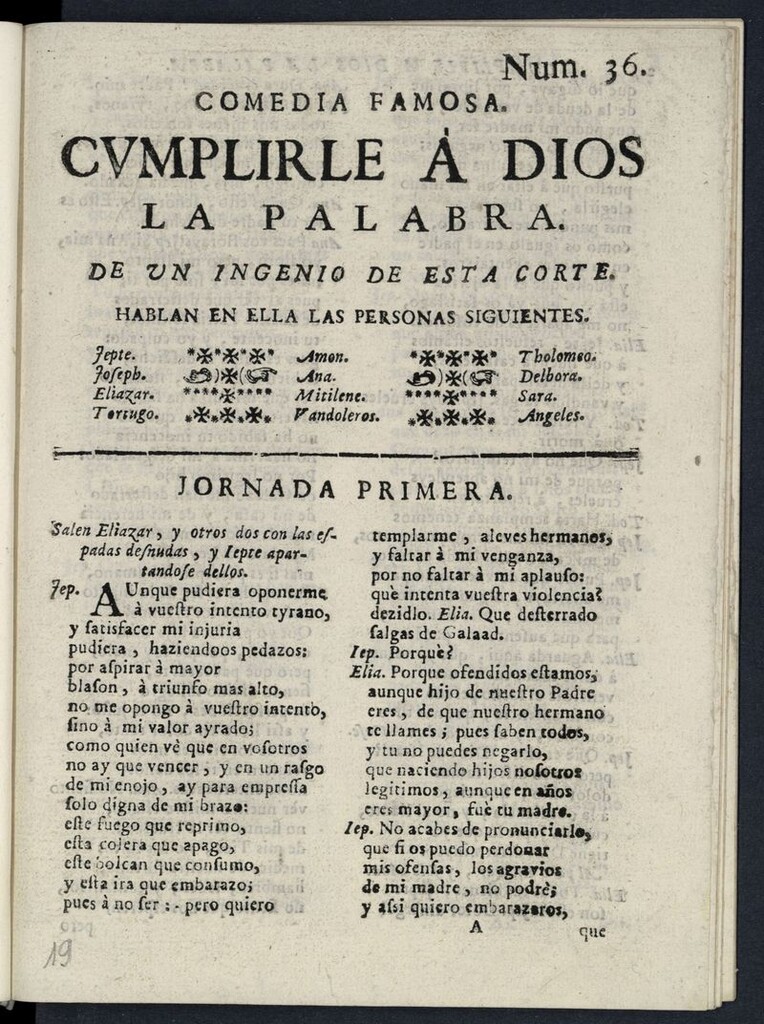 Num. 36.
COMEDIA FAMOSA.
CVMPLIRLE Á DIOS
LA PALABRA.
DE UN INGENIO DE ESTA CORTE.
HABLAN EN ELLA LAS PERSONAS SIGUIENTES.
Jepte. Amon. Tholomeo.
Joſeph. Ana. Delbora.
Eliazar. Mitilene. Sara.
Tortugo. Vandoleros. Angeles.
JORNADA PRIMERA.
Salen Eliazar, y otros dos con las eſ-
padas deſnudas, y Iepte apar-
tandoſe dellos.
Jep. AUnque pudiera oponerme
à vueſtro intento tyrano,
y ſatisfacer mi injuria
pudiera, haziendoos pedazos:
por aſpirar à mayor
blaſon, à triunfo mas alto,
no me opongo à vueſtro intento,
ſino à mi valor ayrado;
como quien vè que en voſotros
no ay que vencer, y en un raſgo
de mi enojo, ay para empreſſa
ſolo digna de mi brazo:
eſte fuego que reprimo,
eſta colera que apago,
eſte bolcan que conſumo,
y eſta ira que embarazo;
pues à no ſer :- pero quiero
templarme, aleves hermanos,
y faltar à mi venganza,
por no faltar à mi aplauſo:
què intenta vueſtra violencia?
dezidlo. Elia. Que deſterrado
ſalgas de Galaad.
Iep. Porquè?
Elia. Porque ofendidos eſtamos,
aunque hijo de nueſtro Padre
eres, de que nueſtro hermano
te llames; pues ſaben todos,
y tu no puedes negarlo,
que naciendo hijos noſotros
legitimos, aunque en años
eres mayor, fuè tu madre.
Iep. No acabes de pronunciarlo,
que ſi os puedo perdonar
mis ofenſas, los agravios
de mi madre, no podrè;
y aſsi quiero embarazaros,
A que
19